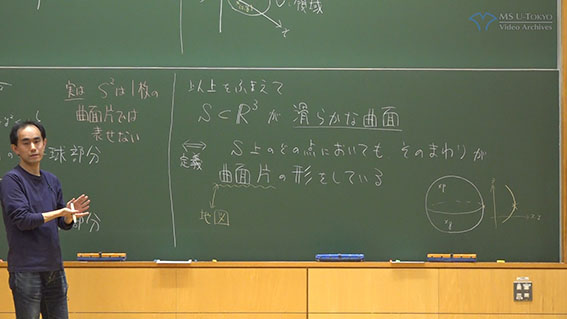 領域
MS U-TOKYO
Video Archives
実は S²は1枚の
曲面片では
表せない
球部分
部分
以上をふまえて
S⊂R³ が 滑らかな曲面
⇔ S上のどの点においても、そのまわりが
定義 曲面片の形をしている
地図